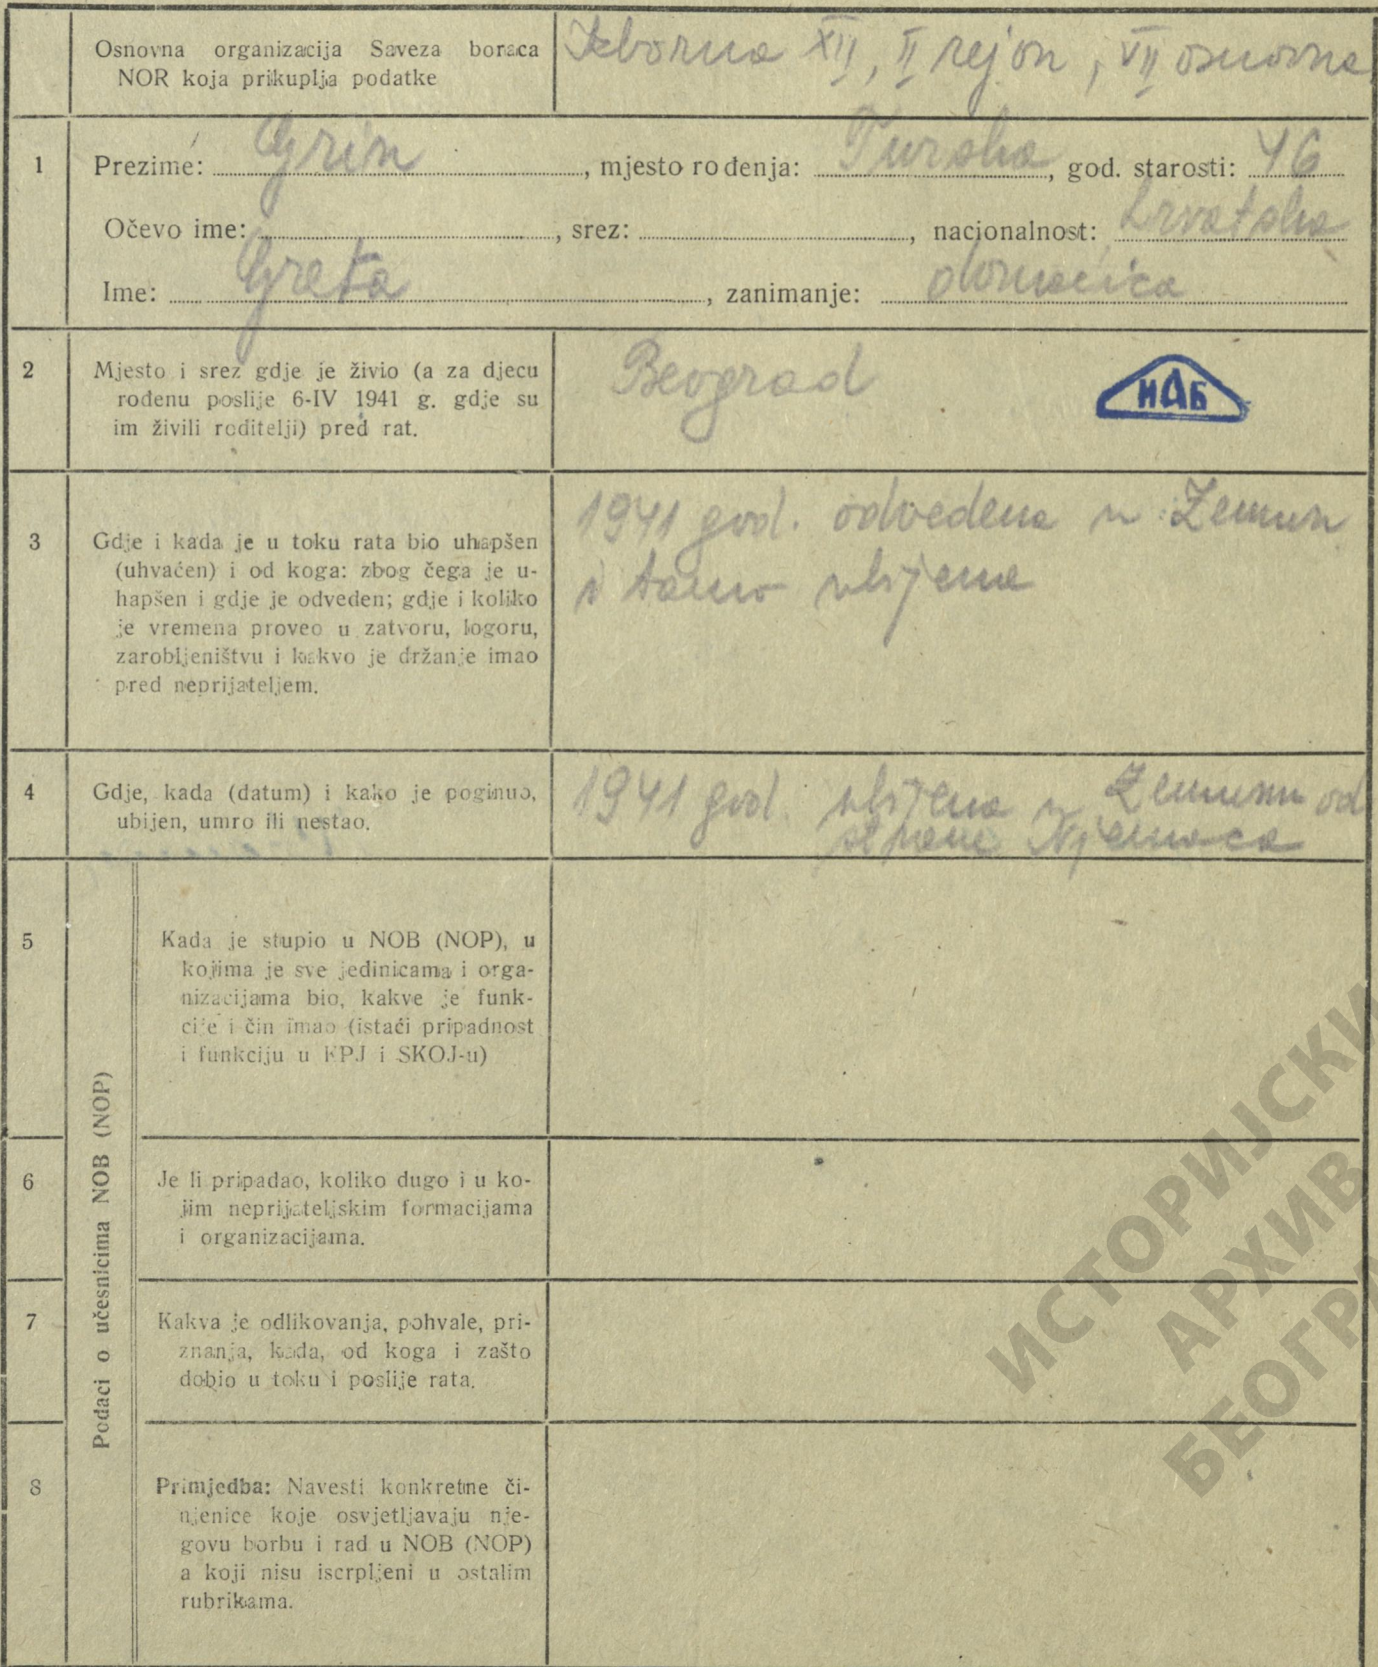 Osnovna organizacija Saveza boraca
NOR koja prikuplja podatke
Izborna XII, II rejon, VII osnovna
1
Prezime: Grin, mjesto rođenja: Turska, god. starosti: 46
Očevo ime: , srez: , nacionalnost: hrvatska
Ime: Greta, zanimanje: domaćica
2
Mjesto i srez gdje je živio (a za djecu
rođenu poslije 6-IV 1941 g. gdje su
im živili roditelji) pred rat.
Beograd
ИАБ
3
Gdje i kada je u toku rata bio uhapšen
(uhvaćen) i od koga: zbog čega je u-
hapšen i gdje je odveden; gdje i koliko
je vremena proveo u zatvoru, logoru,
zarobljeništvu i kakvo je držanje imao
pred neprijateljem.
1941 god. odvedena u Zemun
i tamo ubijena
4
Gdje, kada (datum) i kako je poginuo,
ubijen, umro ili nestao.
1941 god. ubijena u Zemunu od
strane Njemaca
Podaci o učesnicima NOB (NOP)
5
Kada je stupio u NOB (NOP), u
kojima je sve jedinicama i orga-
nizacijama bio, kakve je funk-
cije i čin imao (istaći pripadnost
i funkciju u KPJ i SKOJ-u)
6
Je li pripadao, koliko dugo i u ko-
jim neprijateljskim formacijama
i organizacijama.
7
Kakva je odlikovanja, pohvale, pri-
znanja, kada, od koga i zašto
dobio u toku i poslije rata.
8
Primjedba: Navesti konkretne či-
njenice koje osvjetljavaju nje-
govu borbu i rad u NOB (NOP)
a koji nisu iscrpljeni u ostalim
rubrikama.
ИСТОРИЈСКИ
АРХИВ
БЕОГРА